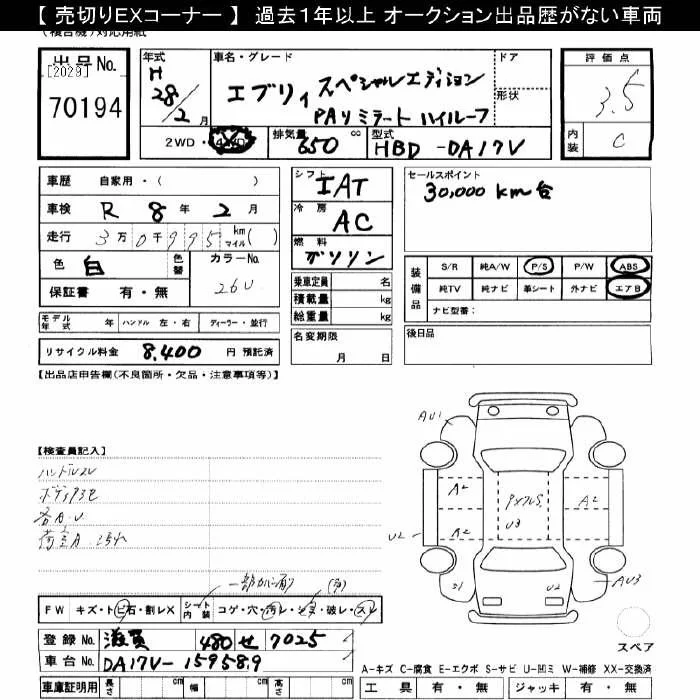 【 売切りEXコーナー 】 過去１年以上 オークション出品歴がない車両
(複合機)対応用紙
出品No.
[2029]
70194
年式
H
28/2月
車名・グレード
エブリィ スペシャルエディション
PAリミテート ハイルーフ
ドア
形状
2WD・4WD
排気量
650 cc
型式
HBD-DA17V
評価点
3.5
内装
C
車歴 自家用・( )
車検 R 8年 2月
走行 3万0千995 km マイル( )
色 白 色替 カラーNo.
26U
保証書 有・無
シフト
IAT
冷房
AC
燃料
ガソリン
セールスポイント
30,000km台
乗車定員 名
積載量 kg
総重量 kg
装備品
S/R 純A/W P/S P/W ABS
純TV 純ナビ 革シート 外ナビ エアB
ナビ型番：
モデル年式 年 ハンドル 左・右 ディーラー・並行
名変期限
月 日
後日品
リサイクル料金 8,400 円 預託済
【出品店申告欄(不良箇所・欠品・注意事項等)】
【検査員記入】
各A・U
AU1
A2
A2
A2
U3
U2
U2
AU3
FW キズ・トビ石・割レX シート内装 コゲ・穴・汚レ・シミ・破レ・スレ
登録No. 滋賀 480 せ 7025
車台No. DA17V-159589
スペア
A－キズ C－腐食 E－エクボ S－サビ U－凹ミ W－補修 XX－交換済
車庫証明用 長さ cm 幅 cm 高さ cm
工具 有・無 ジャッキ 有・無